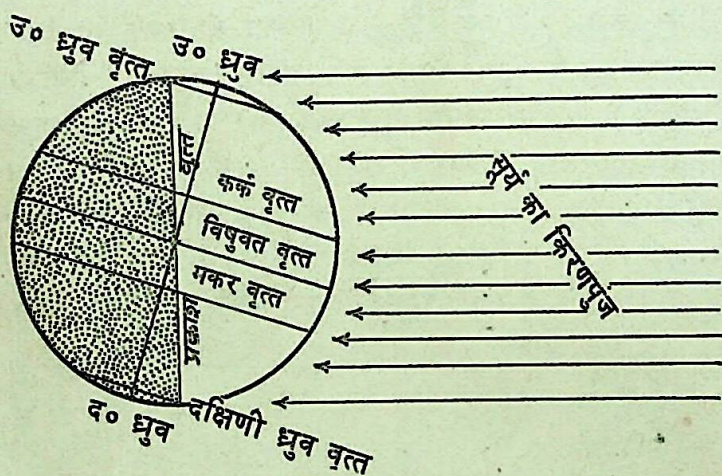 उ० ध्रुव वृंत्त
उ० ध्रुव
वृत्त
कर्क वृत्त
विषुवत वृत्त
मकर वृत्त
प्रकाश
सूर्य का किरणपुंज
द० ध्रुव
दक्षिणी ध्रुव वृत्त